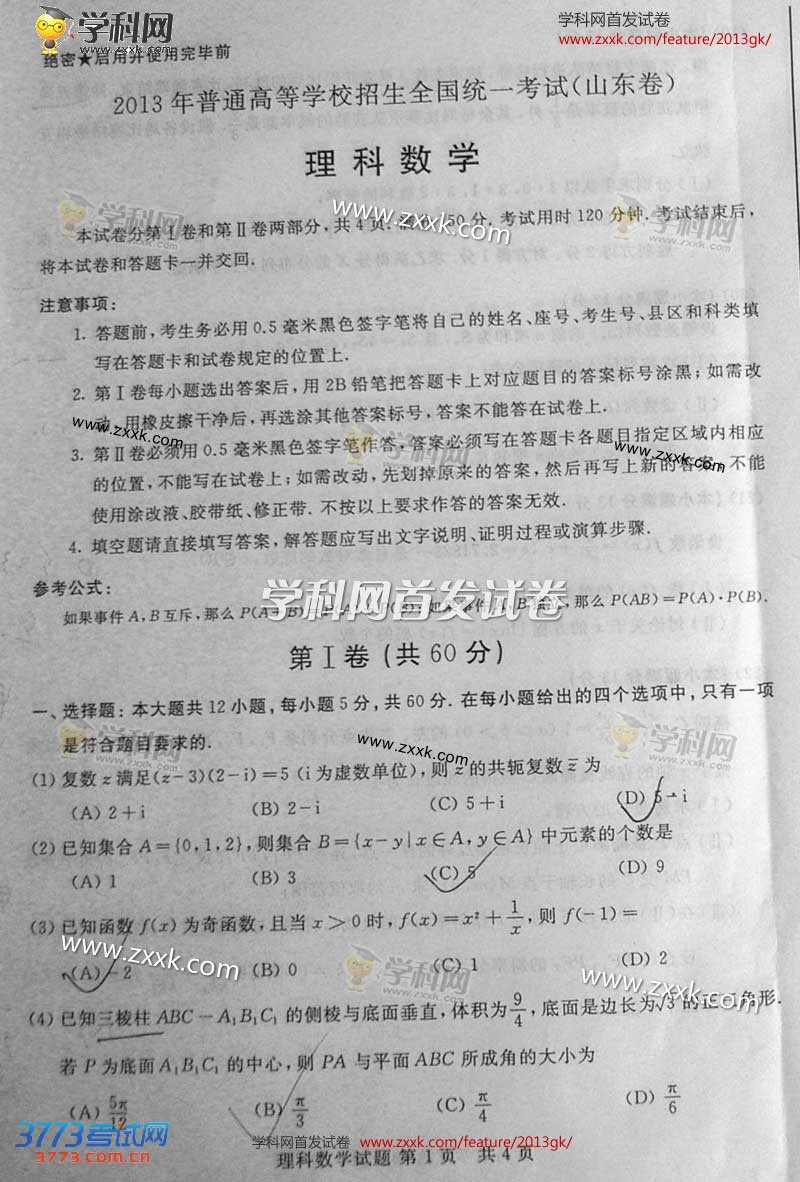 学科网
zxxk.com
学科网首发试卷
www.zxxk.com/feature/2013gk/
绝密★启用并使用完毕前
2013年普通高等学校招生全国统一考试(山东卷)
理科数学
学科网
zxxk.com
www.zxxk.com
学科网
zxxk.com
本试卷分第Ⅰ卷和第Ⅱ卷两部分,共4页.50分.考试用时120分钟.考试结束后,
将本试卷和答题卡一并交回.
注意事项:
1. 答题前,考生务必用0.5毫米黑色签字笔将自己的姓名、座号、考生号、县区和科类填
写在答题卡和试卷规定的位置上.
2. 第Ⅰ卷每小题选出答案后,用2B铅笔把答题卡上对应题目的答案标号涂黑;如需改
动,用橡皮擦干净后,再选涂其他答案标号,答案不能答在试卷上.
www.zxxk.com
学科网
zxxk.com
www.zxxk.com
3. 第Ⅱ卷必须用0.5毫米黑色签字笔作答,答案必须写在答题卡各题目指定区域内相应
的位置,不能写在试卷上;如需改动,先划掉原来的答案,然后再写上新的答案,不能
使用涂改液、胶带纸、修正带.不按以上要求作答的答案无效.
4. 填空题请直接填写答案,解答题应写出文字说明、证明过程或演算步骤.
参考公式:
学科网首发试卷
如果事件A,B互斥,那么P(A+B)=那么P(AB)=P(A)·P(B).
第Ⅰ卷(共60分)
一、选择题:本大题共12小题,每小题5分,共60分.在每小题给出的四个选项中,只有一项
是符合题目要求的.
学科网
zxxk.com
www.zxxk.com
学科网
zxxk.com
(1)复数z满足(z-3)(2-i)=5(i为虚数单位),则z的共轭复数z̄为
(A) 2+i (B) 2-i (C) 5+i (D) 5-i
(2)已知集合A={0,1,2},则集合B={x-y|x∈A,y∈A}中元素的个数是
(A) 1 (B) 3 (C) 5 (D) 9
(3)已知函数f(x)为奇函数,且当x>0时,f(x)=x²+1/x,则f(-1)=
www.zxxk.com
学科网
zxxk.com
www.zxxk.com
(A) -2 (B) 0 (C) 1 (D) 2
(4)已知三棱柱ABC-A₁B₁C₁的侧棱与底面垂直,体积为9/4,底面是边长为√3的正三角形.
若P为底面A₁B₁C₁的中心,则PA与平面ABC所成角的大小为
(A) 5π/12 (B) π/3 (C) π/4 (D) π/6
3773考试网
www.3773.com.cn
学科网首发试卷 www.zxxk.com/feature/2013gk/
理科数学试题 第1页 共4页